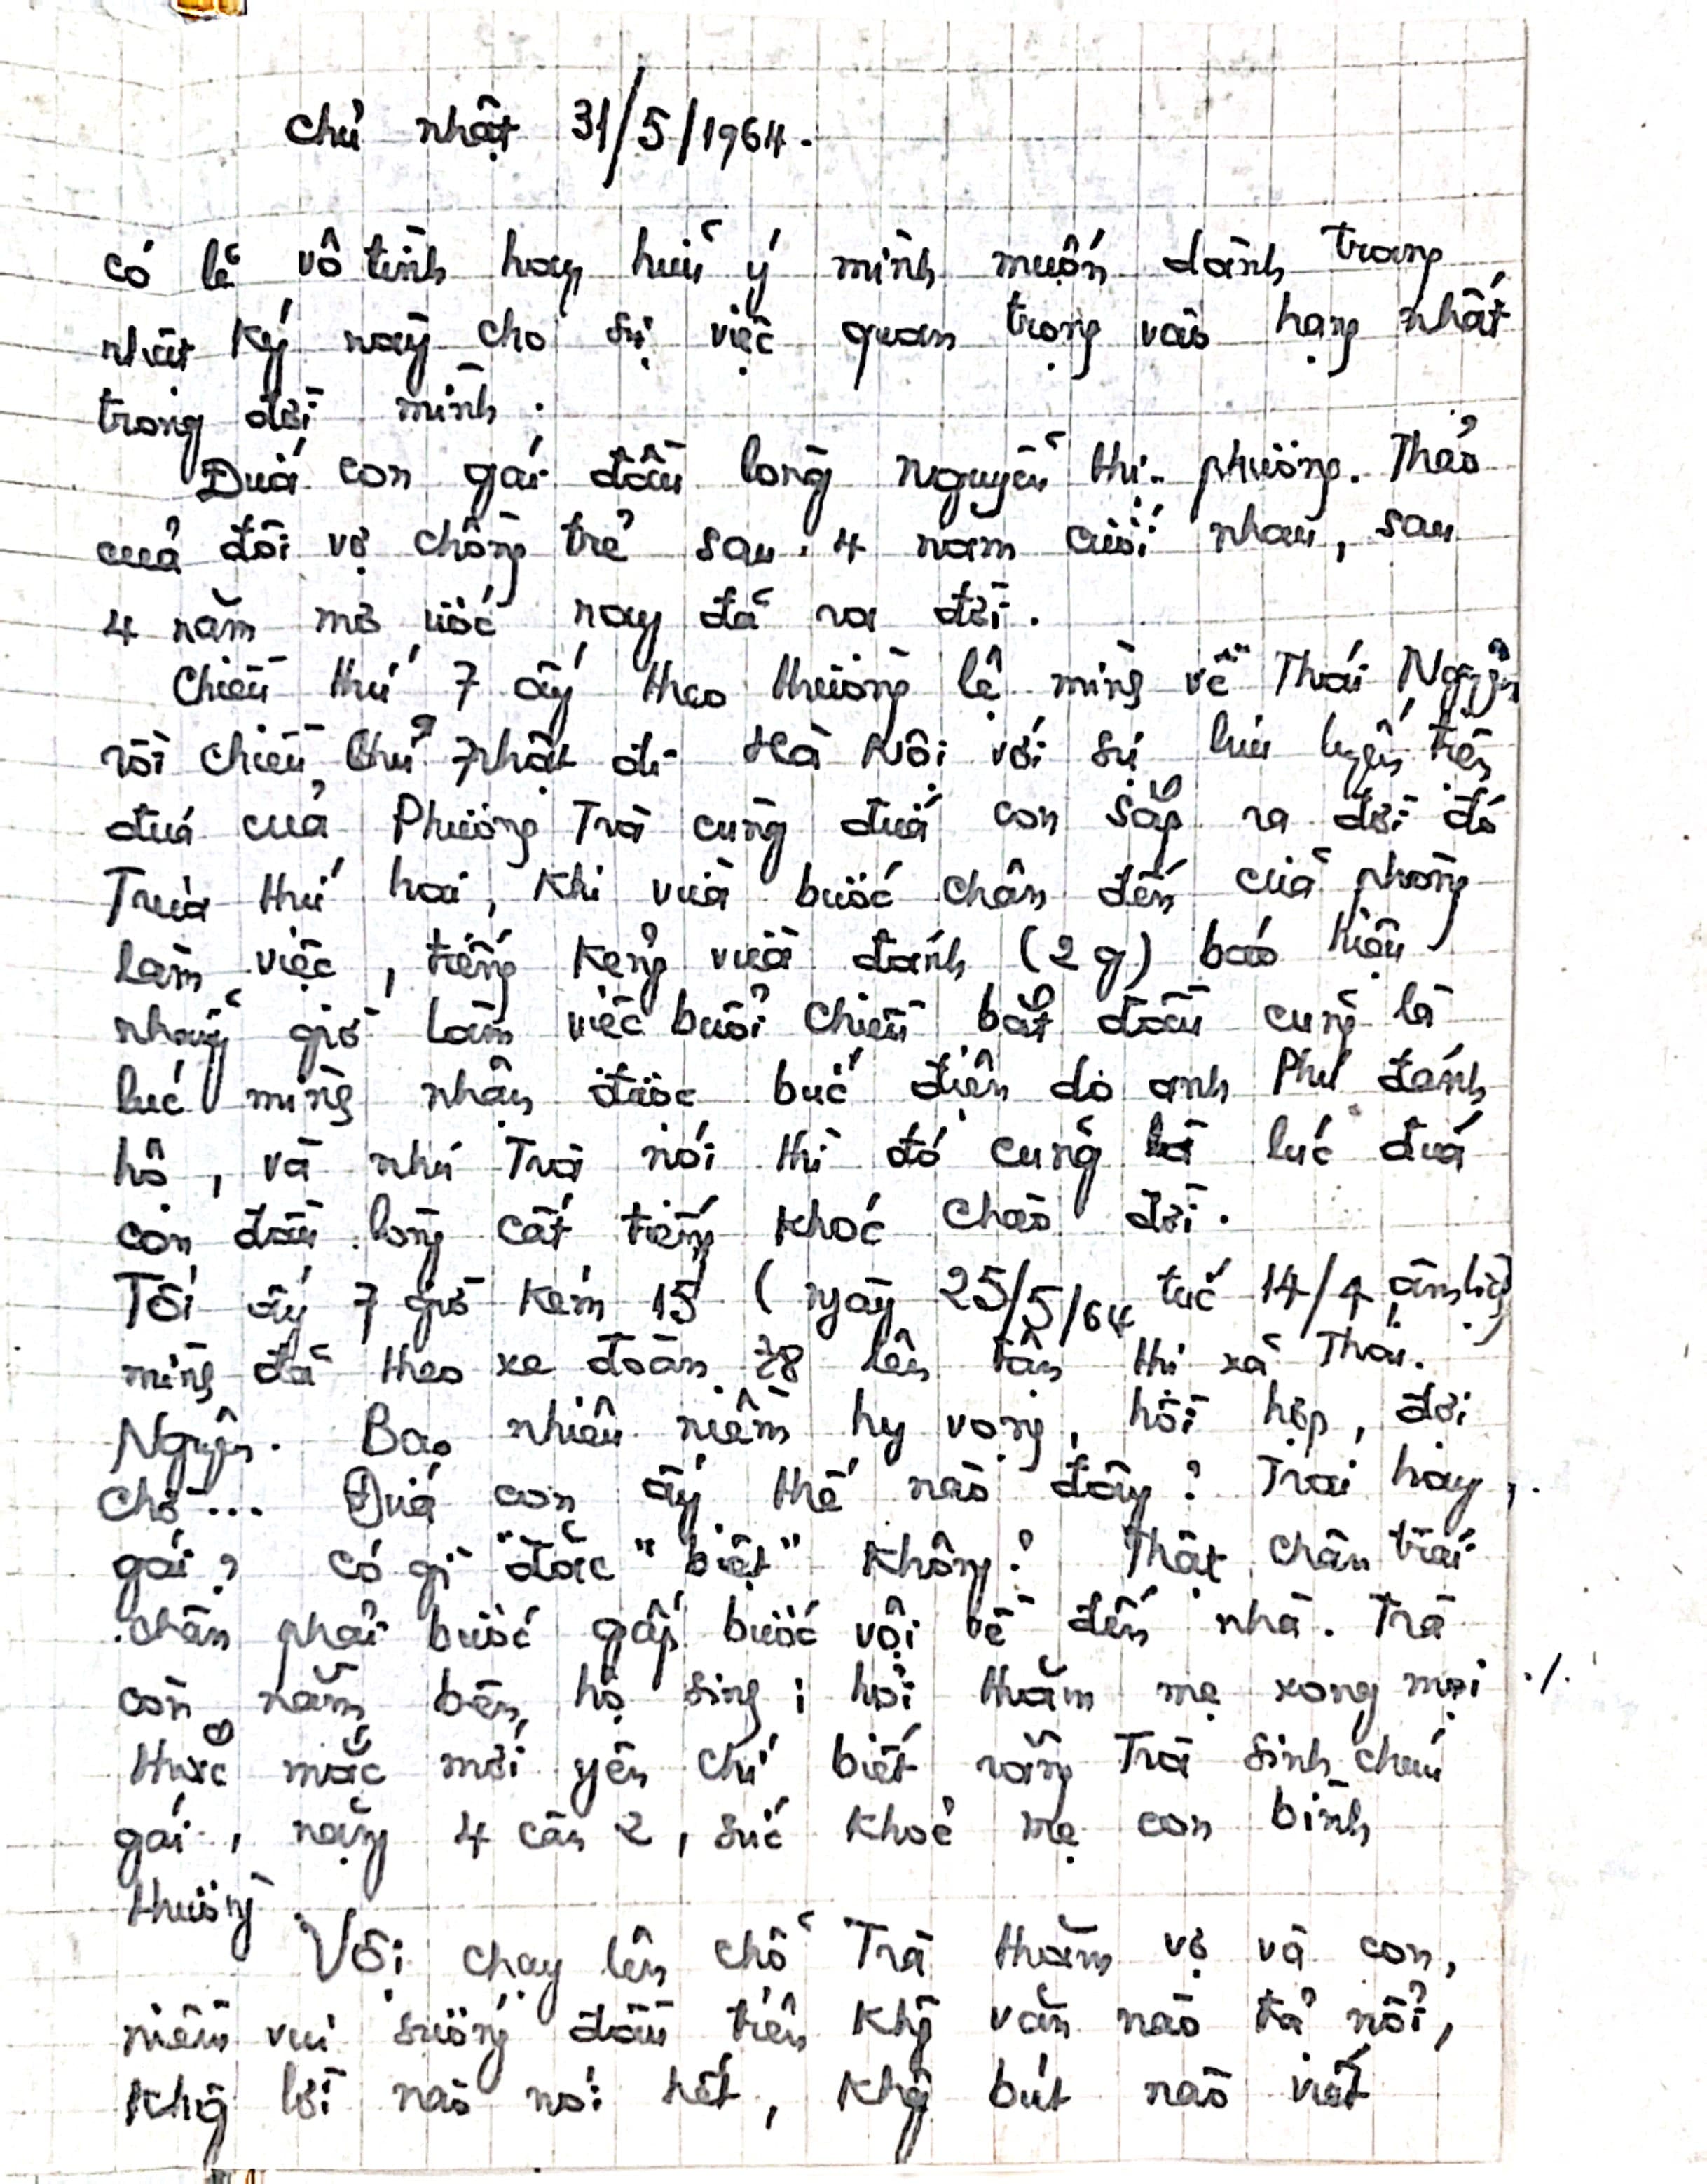 Chủ nhật 31/5/1964.
Có lẽ vô tình hay hữu ý mình muốn dành trang
nhật ký này cho sự việc quan trọng vào hạng nhất
trong đời mình.
Đứa con gái đầu lòng Nguyễn Thị Phương Thảo
của đôi vợ chồng trẻ sau 4 năm cưới nhau, sau
4 năm mơ ước nay đã ra đời.
Chiều thứ 7 ấy theo thường lệ mình về Thái Nguyên
rồi chiều chủ nhật đi Hà Nội với sự lưu luyến tiễn
đưa của Phương Trà cùng đứa con sắp ra đời đó
Trưa thứ hai, khi vừa bước chân đến cửa phòng
làm việc, tiếng kẻng vừa đánh (2g) báo hiệu
những giờ làm việc buổi chiều bắt đầu cũng là
lúc mình nhận được bức điện do anh Phú đánh
hộ, và như Trà nói thì đó cũng là lúc đứa
con đầu lòng cất tiếng khóc chào đời.
Tối ấy 7 giờ kém 15 (ngày 25/5/64 tức 14/4 âm lịch)
mình đã theo xe đoàn 78 lên tận thị xã Thái
Nguyên. Bao nhiêu niềm hy vọng, hồi hộp, đợi
chờ... Đứa con ấy thế nào đây? Trai hay
gái? Có gì "đặc" biệt" không? Thật chân trái
chân phải bước gấp bước vội về đến nhà. Trà
còn nằm bên hộ sinh; hỏi thăm mẹ xong mọi ./.
thắc mắc mới yên chí biết rằng Trà sinh cháu
gái, nặng 4 cân 2, sức khoẻ mẹ con bình
thường.
Vội chạy lên chỗ Trà thăm vợ và con,
niềm vui sướng đầu tiên khg văn nào tả nổi,
khg lời nào nói hết, khg bút nào viết